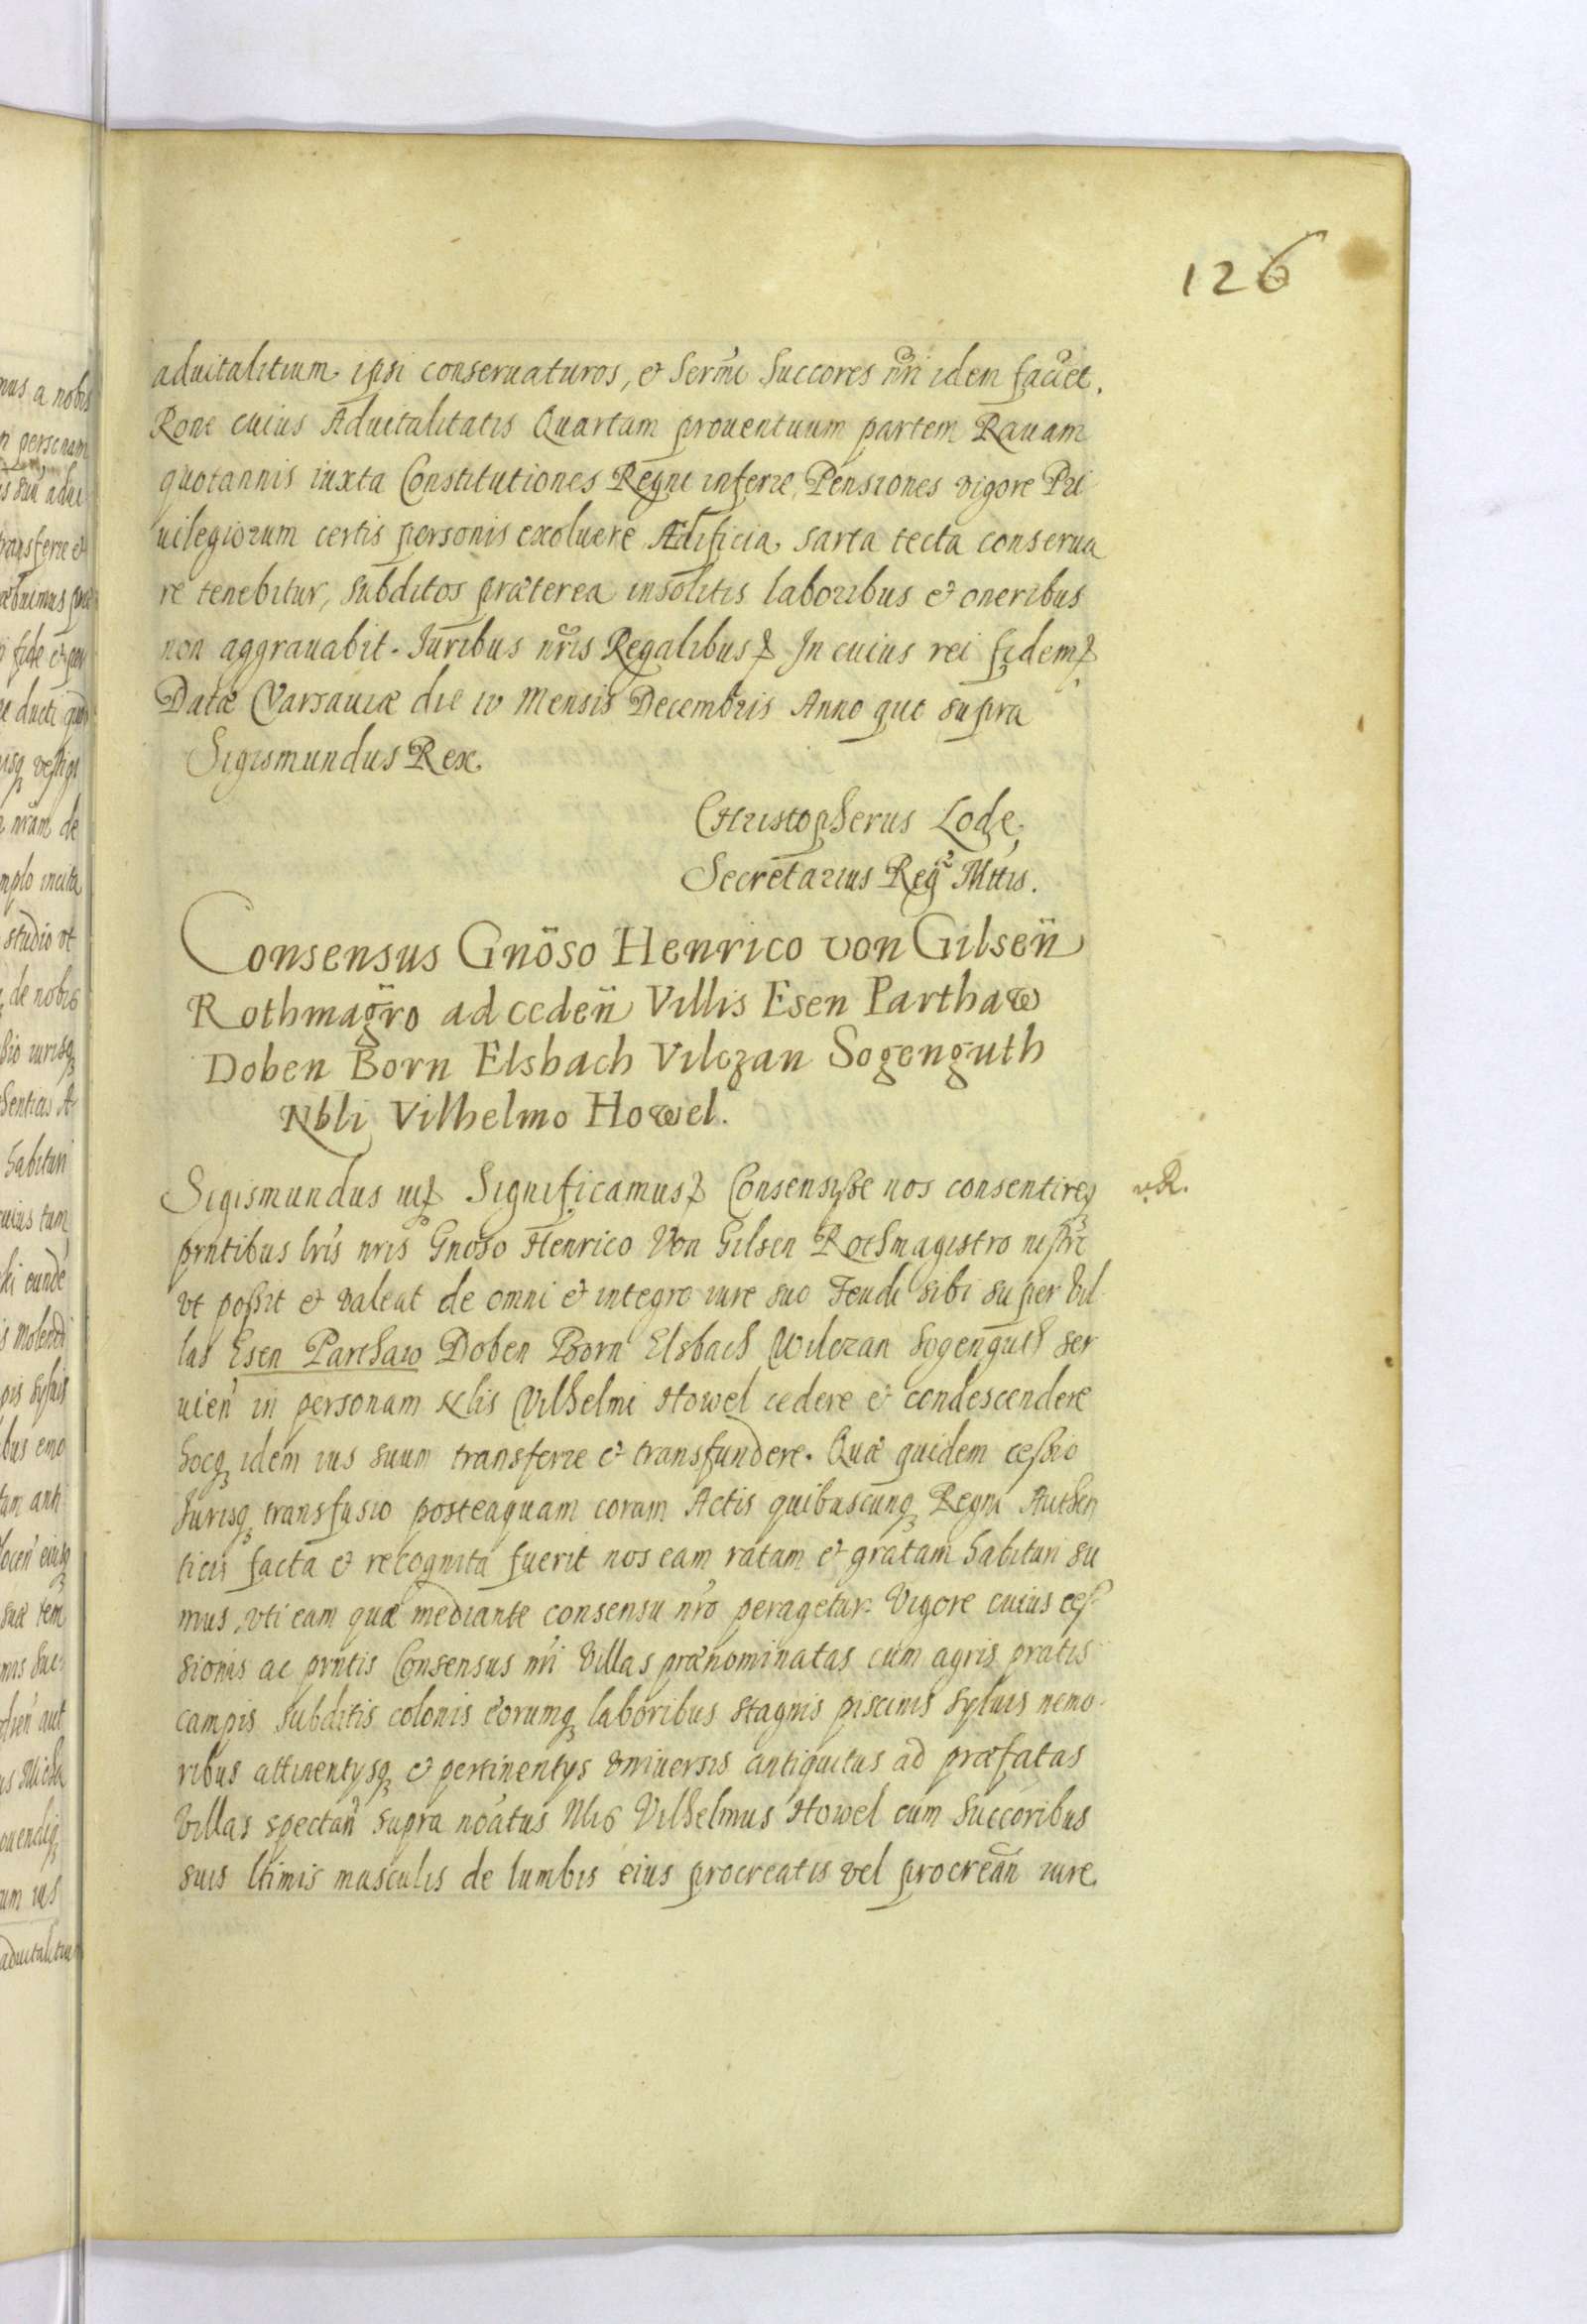 126
aduitalitium ipsi conseruaturos, et Sermi Succores nri idem faciet.
Rone cuius Aduitalitatis Quartam prouentuum partem Rauam
quotannis iuxta Constitutiones Regni inferre, Pensiones vigore Pri
uilegiorum certis personis exoluere Ædificia sarta tecta conserua
re tenebitur, subditos præterea insolitis laboribus et oneribus
non aggrauabit. Iuribus nris Regalibus In cuius rei fidem
Datæ Varsauiæ die iv Mensis Decembris Anno quo supra
Sigismundus Rex
Christopherus Lode,
Secretarius Reg Mttis.
Consensus Gnöso Henrico von Gilsen̈
Rothmagr̈o ad ceden̈ Villis Esen Parthaw
Doben Born Elsbach Vilczan Sogenguth
Nbli Vilhelmo Howel.
Sigismundus iii Significamus Consensisse nos consentireq
v.R.
prntibus lris nris Gnoso Henrico Von Gilsen Rothmagistro nostro
vt possit et valeat de omni et integro iure suo Feudi sibi super Vil
las Esen Parthaw Doben Born Elsbach Wilczan Sogenguth ser
uien in personam Nlis Vilhelmi Howel cedere et condescendere
hocq idem ius suum transferre et transfundere. Quæ quidem cessio
Iurisq transfusio posteaquam coram Actis quibuscunq Regni Authen
ticis facta et recognita fuerit nos eam ratam et gratam habituri su
mus, vti eam quæ mediante consensu nro peragetur. Vigore cuius ces
sionis ac prntis Consensus nri Villas prænominatas cum agris pratis
campis subditis colonis eorumq laboribus stagnis piscinis syluis nemo
ribus attinentysq et pertinentys vniuersis antiquitus ad præfatas
Villas spectan supra noatus Nlis Vilhelmus Howel cum Succoribus
suis ltimis masculis de lumbis eius procreatis vel procrean iure